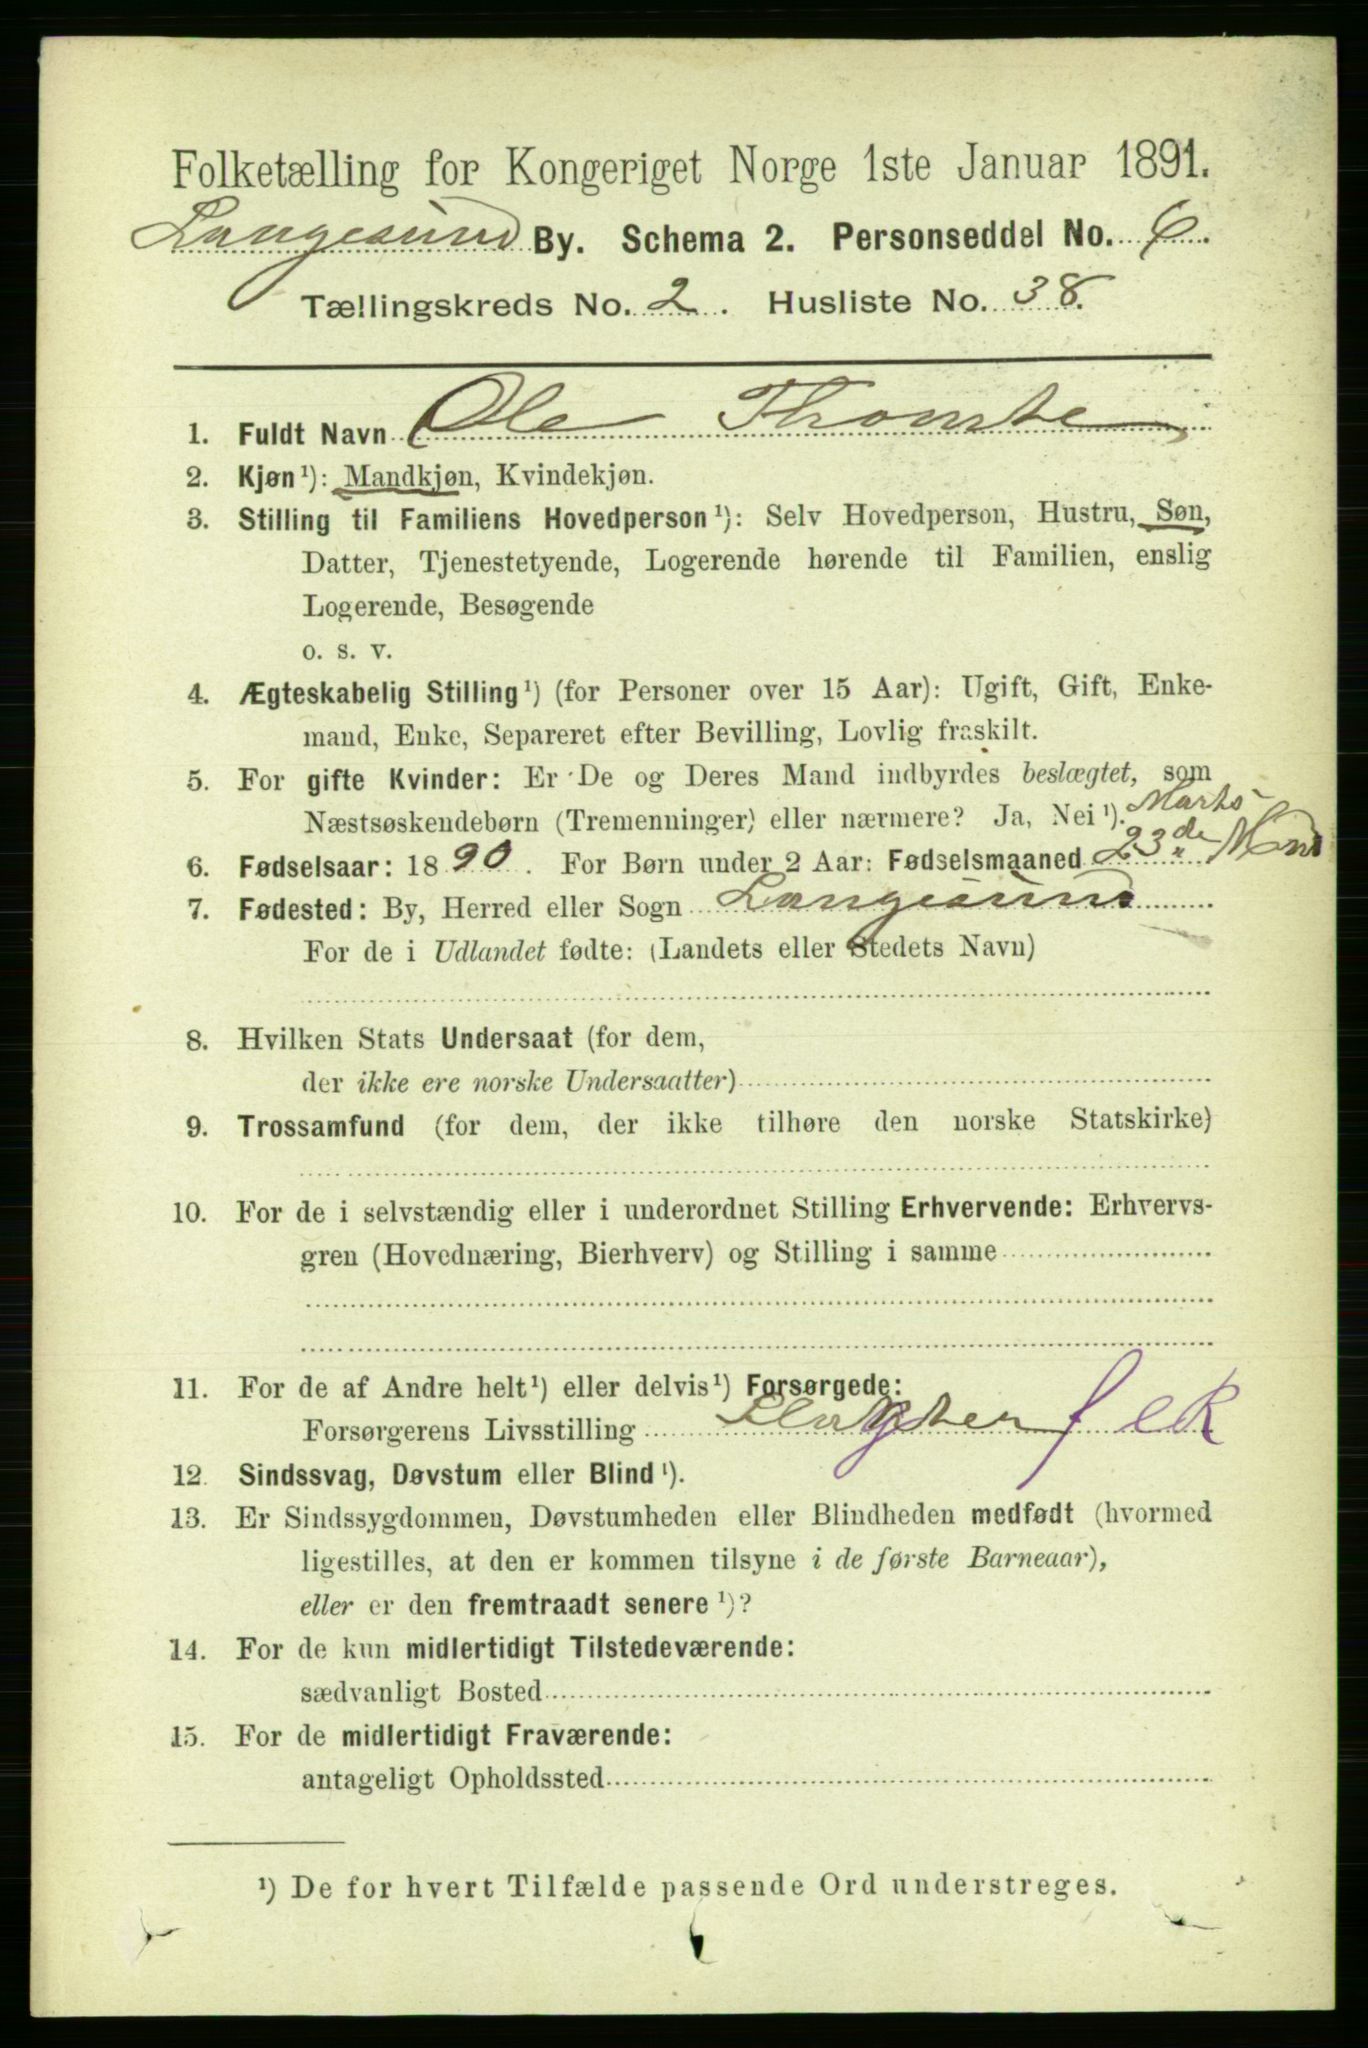 Folketælling for Kongeriget Norge 1ste Januar 1891.
Langesund By. Schema 2. Personseddel No. 6.
Tællingskreds No. 2. Husliste No. 38.
1. Fuldt Navn Ole Thomte
2. Kjøn¹): Mandkjøn, Kvindekjøn.
3. Stilling til Familiens Hovedperson¹): Selv Hovedperson, Hustru, Søn,
Datter, Tjenestetyende, Logerende hørende til Familien, enslig
Logerende, Besøgende
o. s. v.
4. Ægteskabelig Stilling¹) (for Personer over 15 Aar): Ugift, Gift, Enke-
mand, Enke, Separeret efter Bevilling, Lovlig fraskilt.
5. For gifte Kvinder: Er De og Deres Mand indbyrdes beslægtet, som
Næstsøskendebørn (Tremenninger) eller nærmere? Ja, Nei¹).
Marts
6. Fødselsaar: 1890. For Børn under 2 Aar: Fødselsmaaned 23de
7. Fødested: By, Herred eller Sogn Langesund
For de i Udlandet fødte: (Landets eller Stedets Navn)
8. Hvilken Stats Undersaat (for dem,
der ikke ere norske Undersaatter)
9. Trossamfund (for dem, der ikke tilhøre den norske Statskirke)
10. For de i selvstændig eller i underordnet Stilling Erhvervende: Erhvervs-
gren (Hovednæring, Bierhverv) og Stilling i samme
11. For de af Andre helt¹) eller delvis¹) Forsørgede:
Forsørgerens Livsstilling
12. Sindssvag, Døvstum eller Blind¹).
13. Er Sindssygdommen, Døvstumheden eller Blindheden medfødt (hvormed
ligestilles, at den er kommen tilsyne i de første Barneaar),
eller er den fremtraadt senere¹)?
14. For de kun midlertidigt Tilstedeværende:
sædvanligt Bosted
15. For de midlertidigt Fraværende:
antageligt Opholdssted
¹) De for hvert Tilfælde passende Ord understreges.